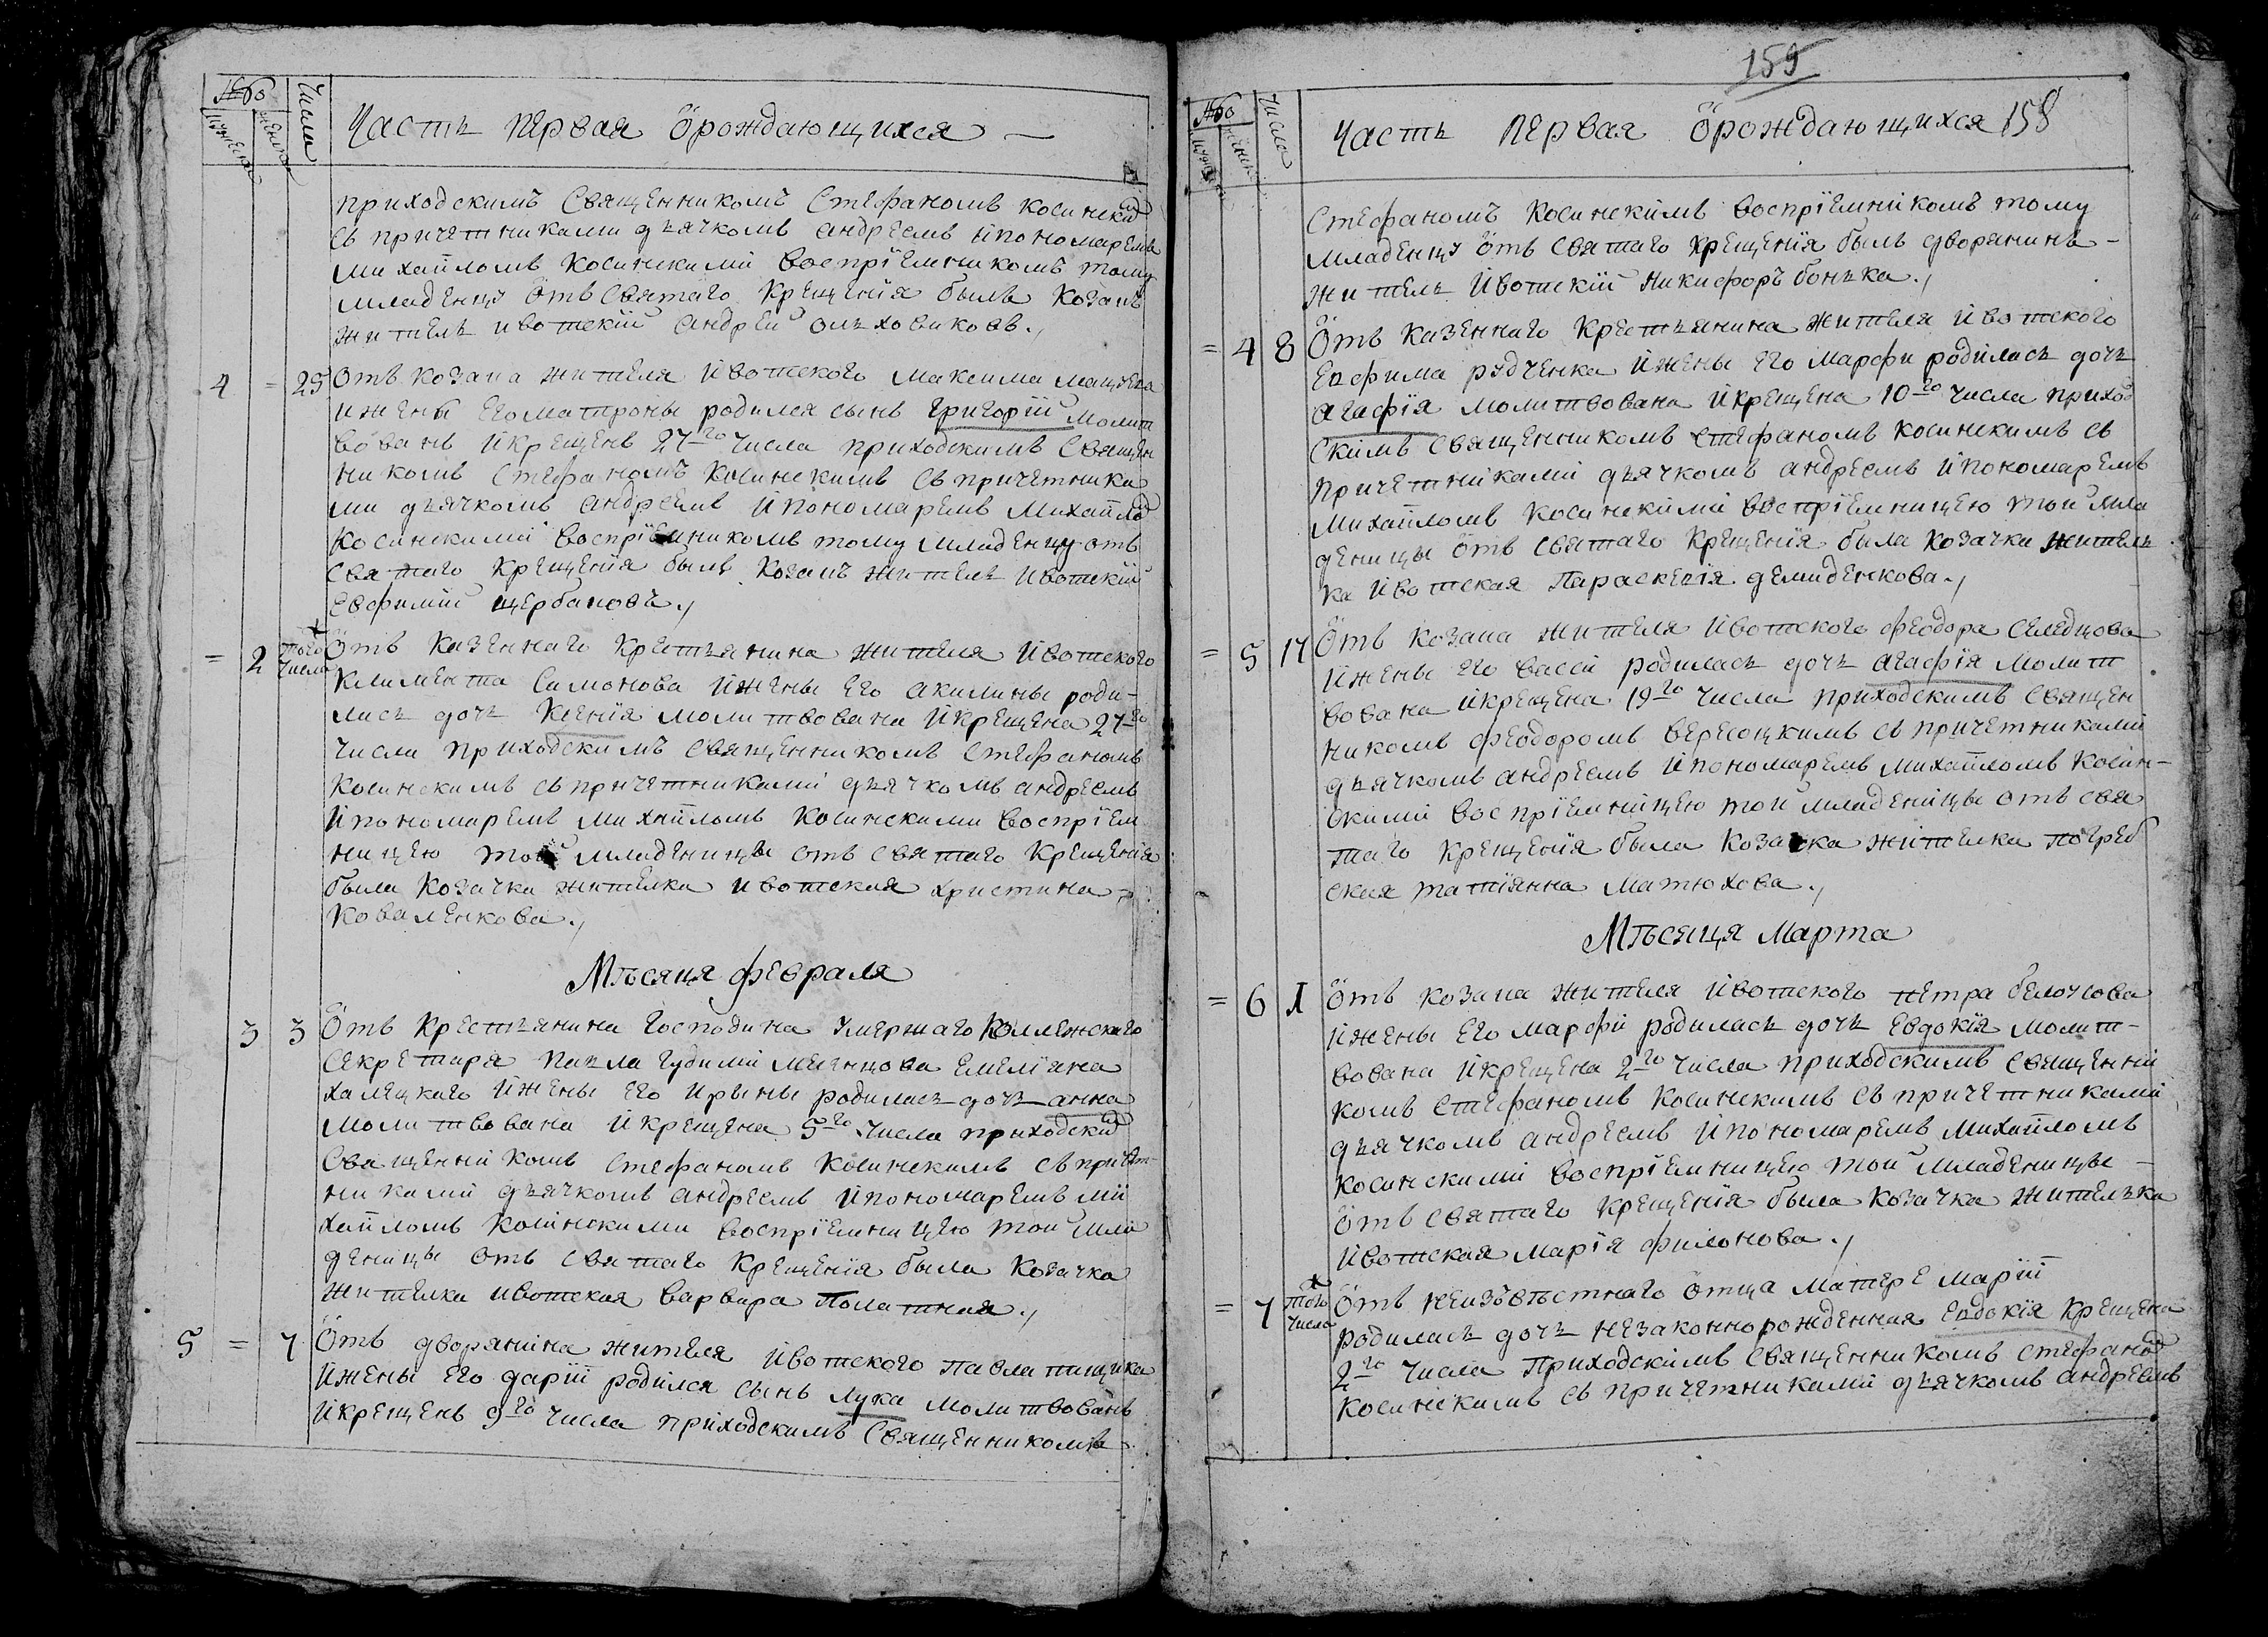 №бо
мужеска
женска
Числа
Часть первая ѽ рождающихся —
приходскимъ Священникомъ Стефаномъ Косинским
съ причетниками дьячкомъ Андреемъ и пономаремъ
Михайломъ Косинскими воспріемникомъ тому
младенцу ѽтъ Святаго Крещенія былъ Козакъ
житель ивотскій Андрей Олъховиковъ.,
4 = 25 Отъ козака жителя ивотского Максима Мацуева
и жены его Матроны родился сынъ Григорій Молит
вованъ и крещенъ 27го числа приходскимъ Священ
никомъ Стефаномъ Косинскимъ съ причетника
ми дьячкомъ Андреемъ и пономаремъ Михайлом
Косинскими воспріемникомъ тому младенцу отъ
Святаго Крещенія былъ Козакъ житель ивотскій
Евфимій Щербаковъ.,
= 2 того числа Ѽтъ Казеннаго Крестьянина жителя ивотского
Климента Симонова и жены его Акилины роди-
лась дочь Ксенія молитвована и крещена 27го
числа приходскимъ Священникомъ Стефаномъ
Косинскимъ съ причетниками дьячкомъ Андреемъ
и пономаремъ Михайломъ Косинскими воспріем
ницею той младеницы отъ Святаго Крещенія
была Козачка жителка ивотская Христина
Коваленкова.,
Мѣсяця Февраля
3 3 Ѽтъ Крестьянина Господина умершаго Коллежского
Секретаря Павла Гудими Емелiяна
Халецкаго и жены его Ирины родилась дочь Анна
Молитвована и крещена 5го числа приходским
Священникомъ Стефаномъ Косинскимъ съ причет-
никами дьячкомъ Андреемъ и пономаремъ Ми
хайломъ Косинскими воспріемницею той мла
деницы отъ Святаго Крещенія была Козачка
жителка ивотская Варвара Полатная.,
5 = 7 Ѽтъ дворянина жителя ивотского Павла Пищика
и жены его Даріи родился сынъ Лука молитвованъ
и крещенъ 9го числа приходскимъ Священникомъ
159
№бо
мужеска
женска
Числа
Часть Первая Ѽ рождающихся 158
Стефаномъ Косинскимъ воспріемникомъ тому
младенцу ѽтъ Святаго Крещенія былъ дворянинъ –
житель ивотскій Никифоръ Бонъка.,
= 4 8 Ѽтъ Казеннаго Крестьянина жителя ивотского
Евфима Рудченка и жены его Марфи родилась дочь
Агафія молитвована и крещена 10го числа приход
скимъ Священникомъ Стефаномъ Косинскимъ съ
причетниками дьячкомъ Андреемъ и пономаремъ
Михайломъ Косинскими воспріемницею той мла
деницы ѽтъ Святаго Крещенія была Козачка житель
ка ивотская Параскевія Демиденкова.,
= 5 17 Ѽтъ козака жителя ивотского Феодора Селедцова
и жены его Вассы родилась дочь Агафія Молит
вована и крещена 19го числа приходскимъ Священ
никомъ Феодоромъ Вересоцкимъ съ причетниками
дьячкомъ Андреемъ и пономаремъ Михайломъ Косин-
скими воспріемницею той младеницы отъ Свя
таго Крещенія была Козачка жителка погреб
ская Татіянна Матюхова.,
Мѣсяця Марта
= 6 1 Ѽтъ козака жителя ивотского Петра Белоусова
и жены его Марфи родилась дочь Евдокія молит-
вована и крещена 2го числа приходскимъ Священни
комъ Стефаномъ Косинскимъ съ причетниками
дьячкомъ Андреемъ и пономаремъ Михайломъ
Косинскими воспріемницею той младеницы –
ѽтъ Святаго Крещенія была Козачка жителька
ивотская Марія Филонова.,
= 7 того числа Ѽтъ неизъвѣстнаго ѽтца матере Маріи
родилась дочь незаконнорожденная Евдокія Крещена
2го числа Приходскимъ Священникомъ Стефаном
Косинскимъ съ причетниками дьячкомъ Андреемъ